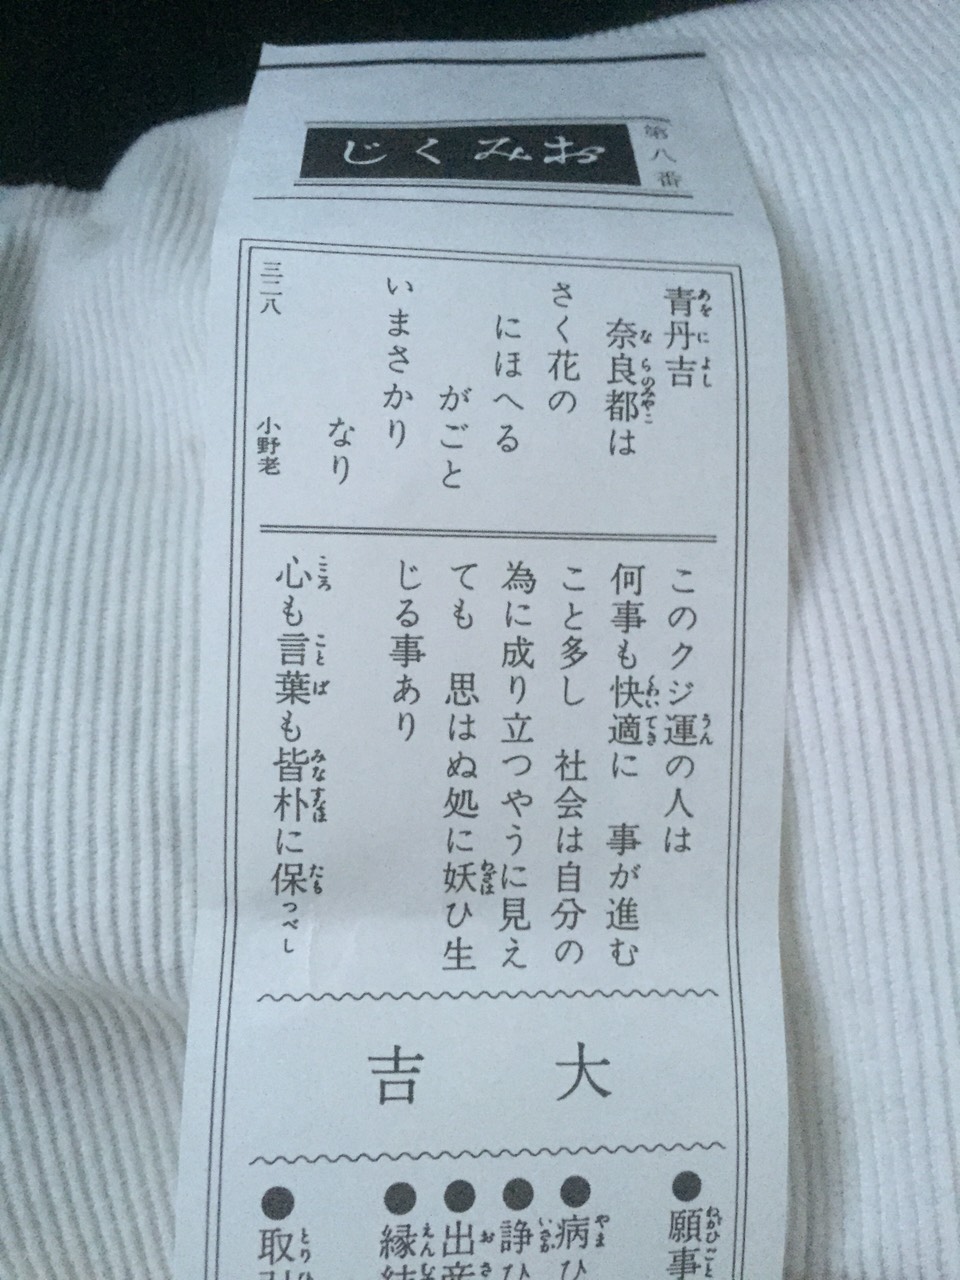 おみくじ
第八番
青丹吉
奈良都は
さく花の
にほへる
がごと
いまさかり
なり
三二八
小野老
このクジ運の人は
何事も快適に 事が進む
こと多し 社会は自分の
為に成り立つやうに見え
ても 思はぬ処に妖ひ生
じる事あり
心も言葉も皆朴に保つべし
大吉
●願事
●病ひ
●諍ひ
●出産
●縁結
●取引